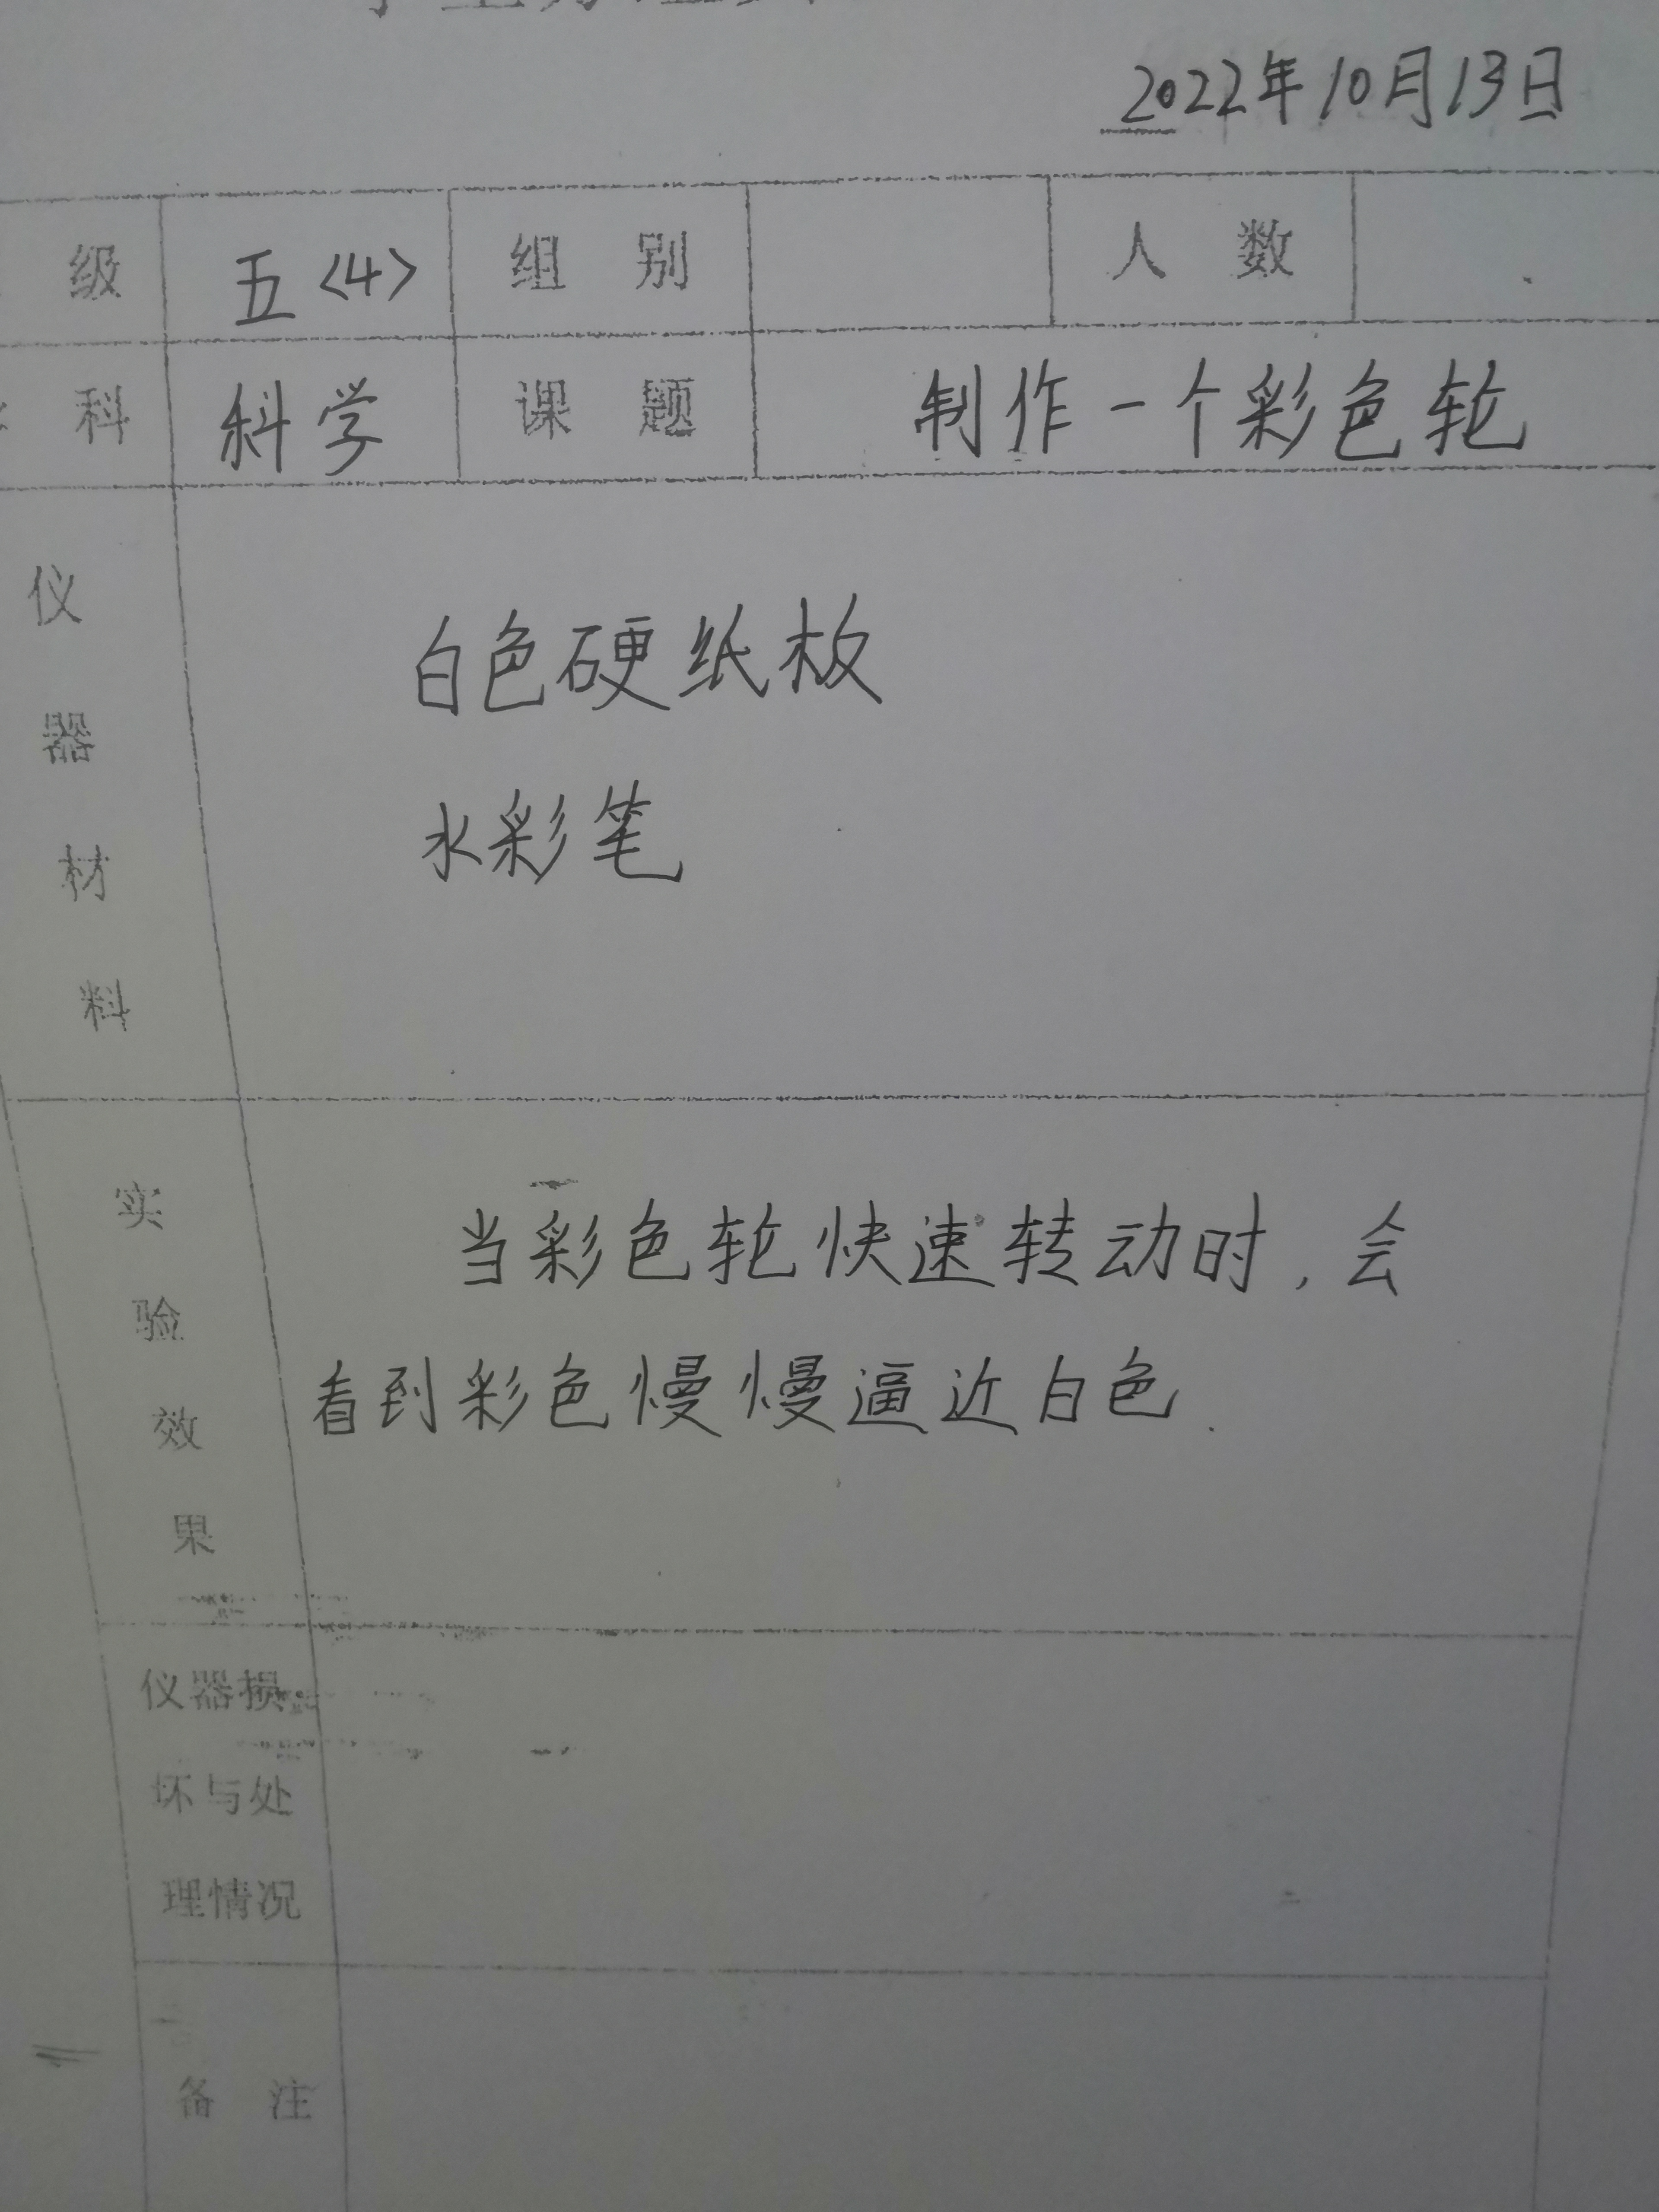 2022年10月13日
级 五<4> 组 别 人 数
科 科学 课 题 制作一个彩色轮
仪器材料
白色硬纸板
水彩笔
实验效果
当彩色轮快速转动时,会
看到彩色慢慢逼近白色.
仪器损
坏与处
理情况
备 注